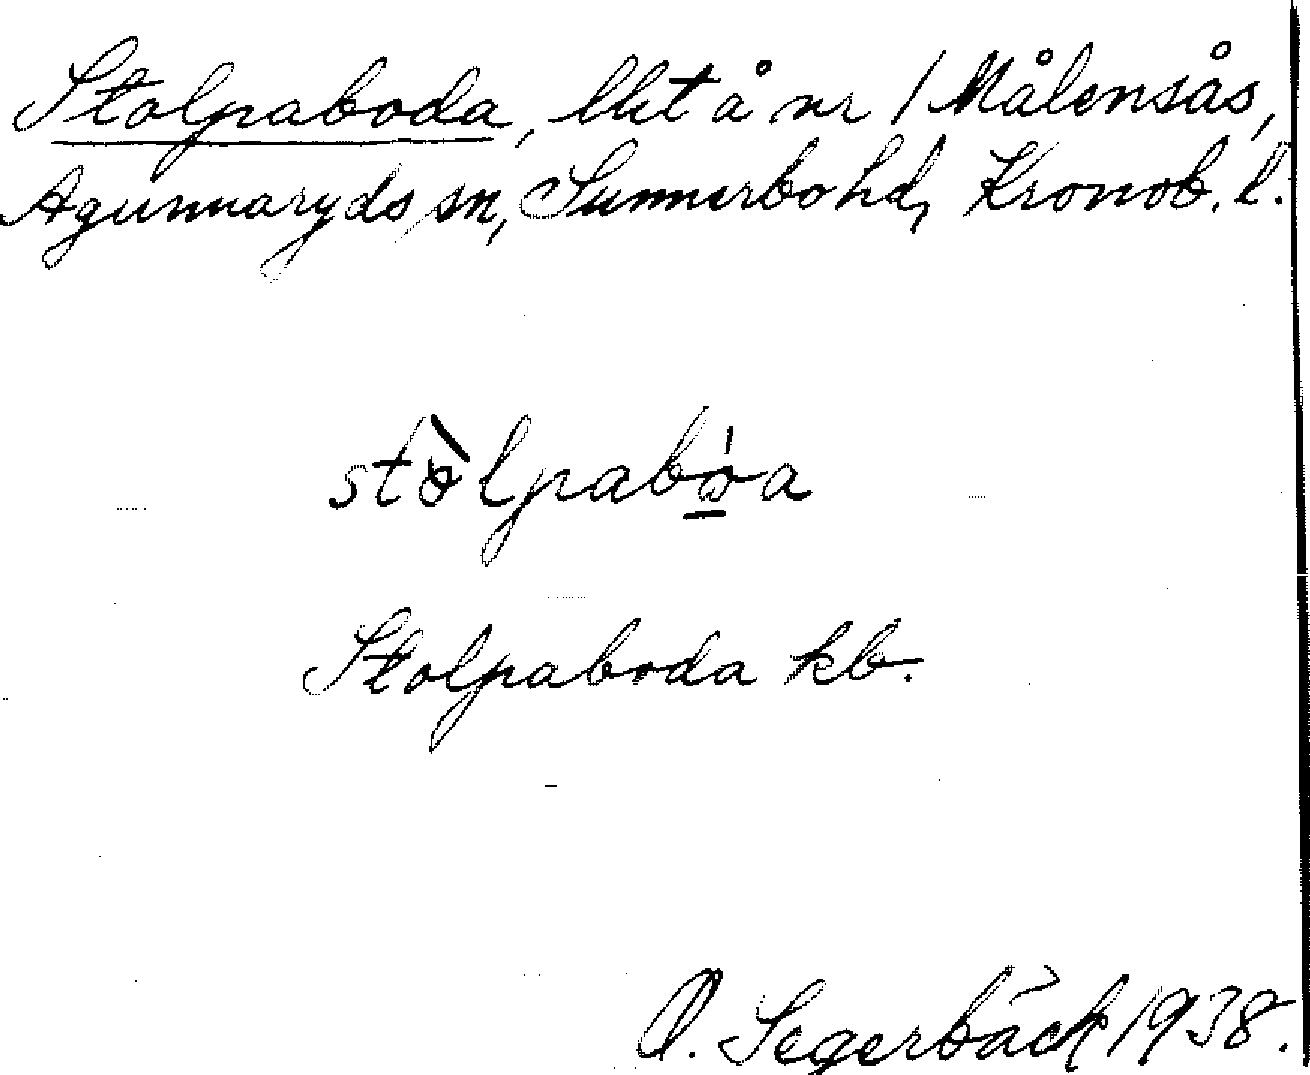 Stolpaboda, llt å nr 1 Målensås,
Agunnaryds sn, Sunnerbo hd, Kronob. l.
stòlpabó̲a
Stolpaboda kb.
O. Segerbäck 1938.